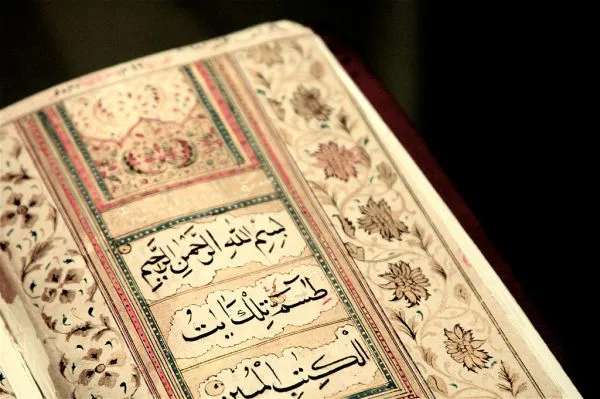 بِسْمِ اللهِ الرَّحْمٰنِ الرَّحِيْمِ
طٰسٓمّٓ تِلْكَ اٰيٰتُ
الْكِتٰبِ الْمُبِيْنِ